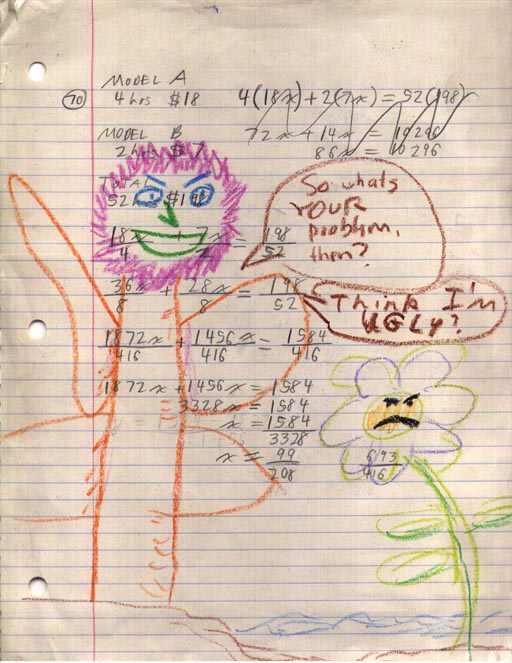 MODEL A
70 4 hrs $18 4(18x)+2(7x)=52(198)
MODEL B 72x+14x=10296
2 hrs $7 86x=10296
TOTAL
52 hrs $198
18x/4 + 7x/2 = 198/52
36x/8 + 28x/8 = 198/52
1872x/416 + 1456x/416 = 1584/416
1872x+1456x=1584
3328x=1584
x=1584/3328
x=99/208
693/416
So whats
YOUR
problem,
then?
Think I'm
UGLy?